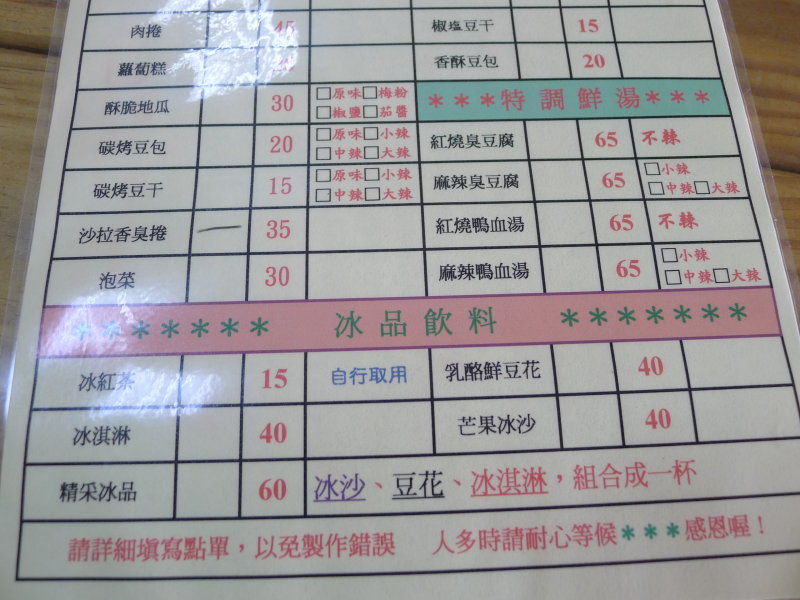 肉捲 45 椒塩豆干 15
蘿蔔糕 香酥豆包 20
酥脆地瓜 30 □原味□梅粉 □椒鹽□茄醬 ***特調鮮湯***
碳烤豆包 20 □原味□小辣 □中辣□大辣 紅燒臭豆腐 65 不辣
碳烤豆干 15 □原味□小辣 □中辣□大辣 麻辣臭豆腐 65 □小辣 □中辣□大辣
沙拉香臭捲 35 紅燒鴨血湯 65 不辣
泡菜 30 麻辣鴨血湯 65 □小辣 □中辣□大辣
******* 冰品飲料 *******
冰紅茶 15 自行取用 乳酪鮮豆花 40
冰淇淋 40 芒果冰沙 40
精采冰品 60 冰沙、豆花、冰淇淋，組合成一杯
請詳細填寫點單，以免製作錯誤 人多時請耐心等候***感恩喔！